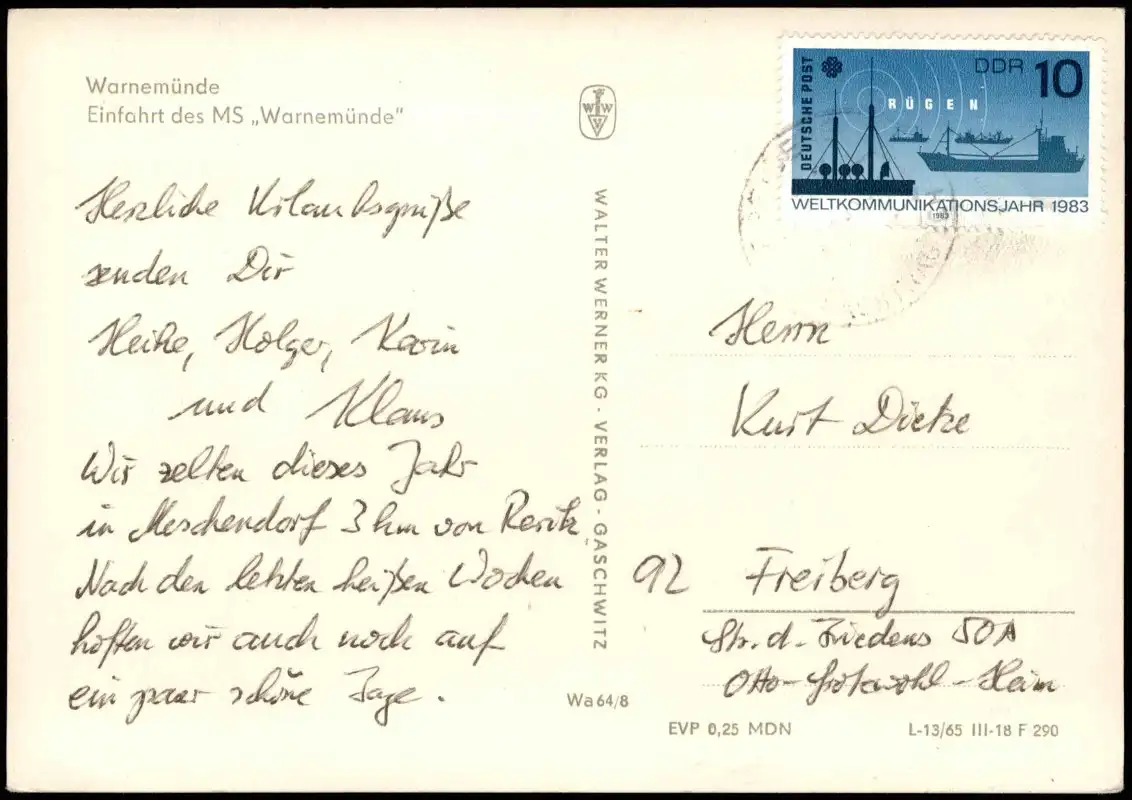 Warnemünde
Einfahrt des MS „Warnemünde“
Herzliche Urlaubsgrüße
senden Dir
Heike, Holger, Karin
und Klaus
Wir zelten dieses Jahr
in Meschendorf 3 km von Rerik.
Nach den letzten heißen Wochen
hoffen wir auch noch auf
ein paar schöne Tage.
WWV
WALTER WERNER KG - VERLAG - GASCHWITZ
Wa 64/8
DEUTSCHE POST
DDR 10
RÜGEN
WELTKOMMUNIKATIONSJAHR 1983
1983
Herrn
Kurt Dietze
92 Freiberg
Str. d. Friedens 50A
Otto-Grotewohl-Heim
EVP 0,25 MDN
L-13/65 III-18 F 290